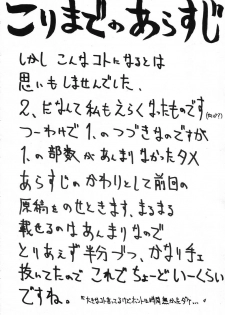 こりまでのあらすじ
しかし こんなコトになるとは
思いもしませんでした。
2、だなんて私もえらくなったものです
つーわけで 1、のつづきなのですが
1、の部数があんまりなかったタメ
あらすじのかわりとして前回の
原稿をのせときます、まるまる
載せるのはあんまりなので
とりあえず半分づつ、かなり手ェ
抜いてたので これでちょーどいーくらい
ですね。